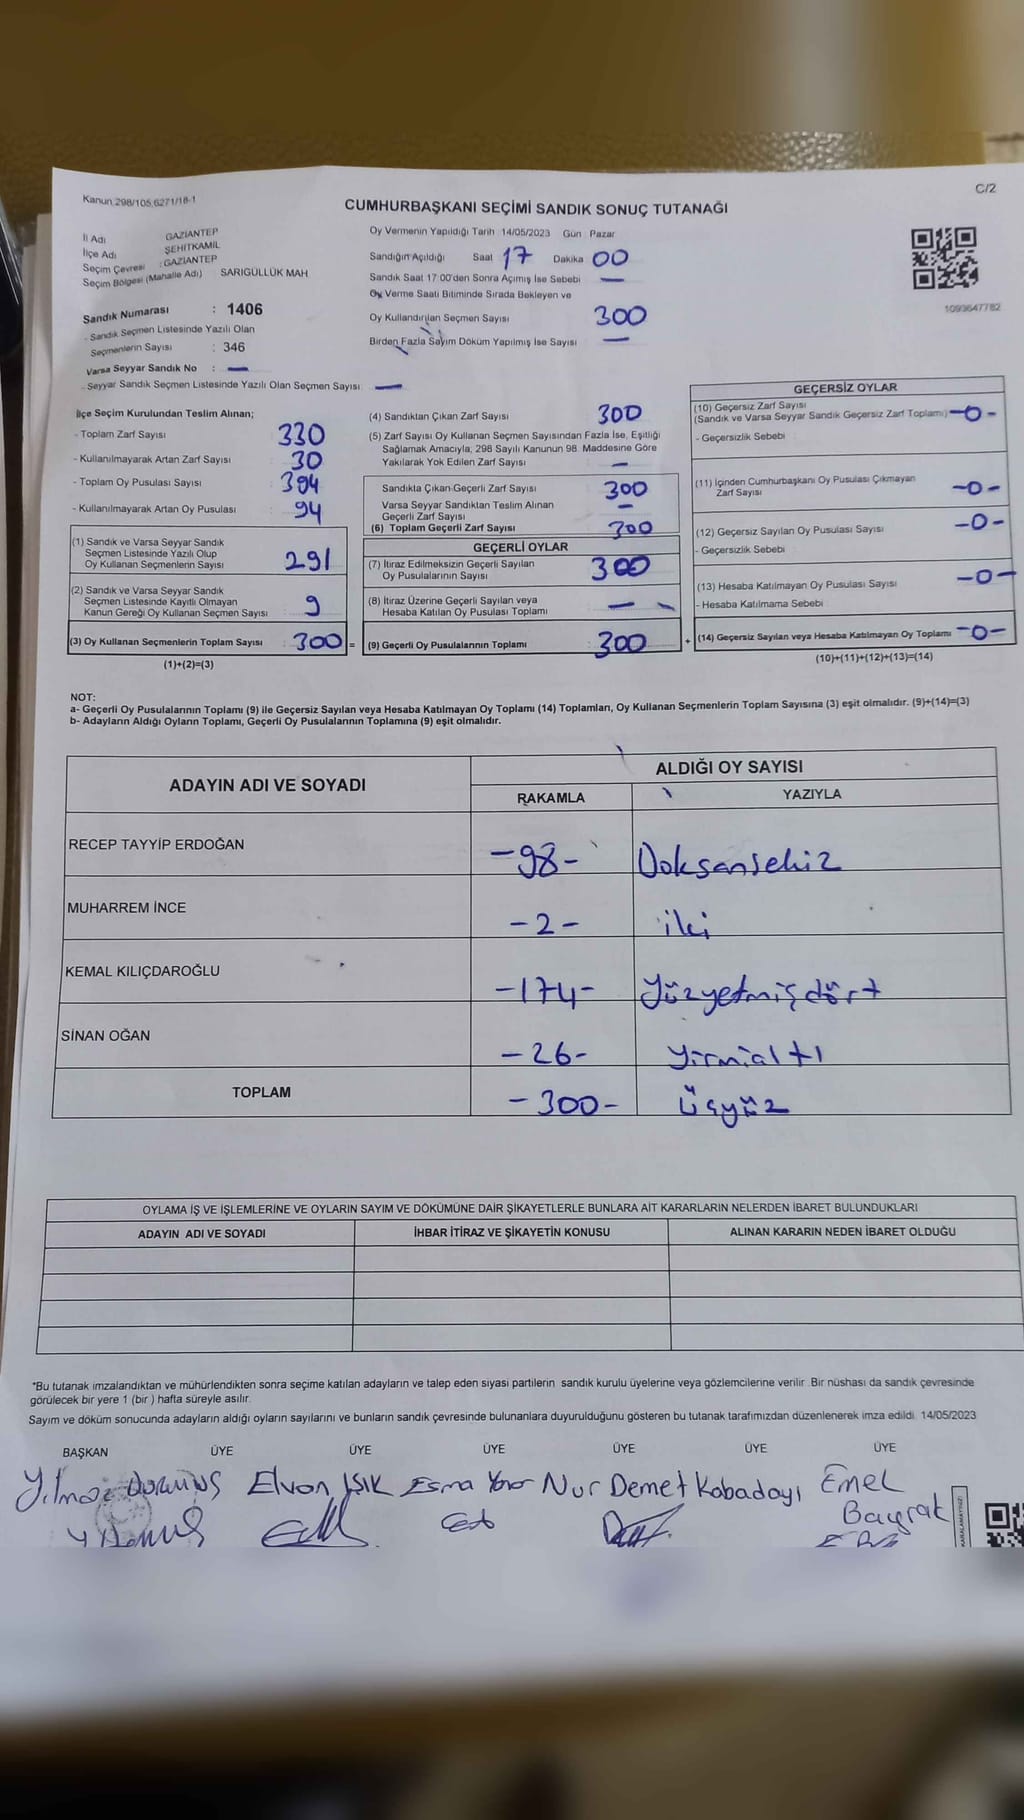 Kanun 298/105,6271/18-1
C/2
CUMHURBAŞKANI SEÇİMİ SANDIK SONUÇ TUTANAĞI
İl Adı GAZİANTEP
İlçe Adı ŞEHİTKAMİL
Seçim Çevresi : GAZİANTEP
Seçim Bölgesi (Mahalle Adı) SARIGÜLLÜK MAH
Sandık Numarası : 1406
- Sandık Seçmen Listesinde Yazılı Olan
Seçmenlerin Sayısı : 346
Varsa Seyyar Sandık No : —
- Seyyar Sandık Seçmen Listesinde Yazılı Olan Seçmen Sayısı —
Oy Vermenin Yapıldığı Tarih 14/05/2023 Gün Pazar
Sandığın Açıldığı Saat 17 Dakika 00
Sandık Saat 17:00'den Sonra Açımış İse Sebebi —
Oy Verme Saati Bitiminde Sırada Bekleyen ve
Oy Kullandırılan Seçmen Sayısı 300
Birden Fazla Sayım Döküm Yapılmış İse Sayısı —
1093647782
İlçe Seçim Kurulundan Teslim Alınan;
- Toplam Zarf Sayısı 330
- Kullanılmayarak Artan Zarf Sayısı 30
- Toplam Oy Pusulası Sayısı 394
- Kullanılmayarak Artan Oy Pusulası 94
(1) Sandık ve Varsa Seyyar Sandık
Seçmen Listesinde Yazılı Olup
Oy Kullanan Seçmenlerin Sayısı 291
(2) Sandık ve Varsa Seyyar Sandık
Seçmen Listesinde Kayıtlı Olmayan
Kanun Gereği Oy Kullanan Seçmen Sayısı 9
(3) Oy Kullanan Seçmenlerin Toplam Sayısı : 300 =
(1)+(2)=(3)
(4) Sandıktan Çıkan Zarf Sayısı 300
(5) Zarf Sayısı Oy Kullanan Seçmen Sayısından Fazla İse, Eşitliği
Sağlamak Amacıyla; 298 Sayılı Kanunun 98. Maddesine Göre
Yakılarak Yok Edilen Zarf Sayısı —
Sandıkta Çıkan Geçerli Zarf Sayısı 300
Varsa Seyyar Sandıktan Teslim Alınan
Geçerli Zarf Sayısı —
(6) Toplam Geçerli Zarf Sayısı 300
GEÇERLİ OYLAR
(7) İtiraz Edilmeksizin Geçerli Sayılan
Oy Pusulalarının Sayısı 300
(8) İtiraz Üzerine Geçerli Sayılan veya
Hesaba Katılan Oy Pusulası Toplamı —
(9) Geçerli Oy Pusulalarının Toplamı 300 +
GEÇERSİZ OYLAR
(10) Geçersiz Zarf Sayısı
(Sandık ve Varsa Seyyar Sandık Geçersiz Zarf Toplamı) -0-
- Geçersizlik Sebebi
(11) İçinden Cumhurbaşkanı Oy Pusulası Çıkmayan
Zarf Sayısı -0-
(12) Geçersiz Sayılan Oy Pusulası Sayısı -0-
- Geçersizlik Sebebi
(13) Hesaba Katılmayan Oy Pusulası Sayısı -0-
- Hesaba Katılmama Sebebi
(14) Geçersiz Sayılan veya Hesaba Katılmayan Oy Toplamı -0-
(10)+(11)+(12)+(13)=(14)
NOT:
a- Geçerli Oy Pusulalarının Toplamı (9) ile Geçersiz Sayılan veya Hesaba Katılmayan Oy Toplamı (14) Toplamları, Oy Kullanan Seçmenlerin Toplam Sayısına (3) eşit olmalıdır. (9)+(14)=(3)
b- Adayların Aldığı Oyların Toplamı, Geçerli Oy Pusulalarının Toplamına (9) eşit olmalıdır.
ADAYIN ADI VE SOYADI ALDIĞI OY SAYISI
RAKAMLA YAZIYLA
RECEP TAYYİP ERDOĞAN -98- Doksansekiz
MUHARREM İNCE -2- iki
KEMAL KILIÇDAROĞLU -174- Yüzyetmişdört
SİNAN OĞAN -26- Yirmialtı
TOPLAM -300- Üçyüz
OYLAMA İŞ VE İŞLEMLERİNE VE OYLARIN SAYIM VE DÖKÜMÜNE DAİR ŞİKAYETLERLE BUNLARA AİT KARARLARIN NELERDEN İBARET BULUNDUKLARI
ADAYIN ADI VE SOYADI İHBAR İTİRAZ VE ŞİKAYETİN KONUSU ALINAN KARARIN NEDEN İBARET OLDUĞU
*Bu tutanak imzalandıktan ve mühürlendikten sonra seçime katılan adayların ve talep eden siyasi partilerin sandık kurulu üyelerine veya gözlemcilerine verilir. Bir nüshası da sandık çevresinde
görülecek bir yere 1 (bir ) hafta süreyle asılır.
Sayım ve döküm sonucunda adayların aldığı oyların sayılarını ve bunların sandık çevresinde bulunanlara duyurulduğunu gösteren bu tutanak tarafımızdan düzenlenerek imza edildi. 14/05/2023
BAŞKAN ÜYE ÜYE ÜYE ÜYE ÜYE ÜYE
Yılmaz Durmuş Elvan IŞIK Esma Nur Demet Kabadayı Emel
Bayrak